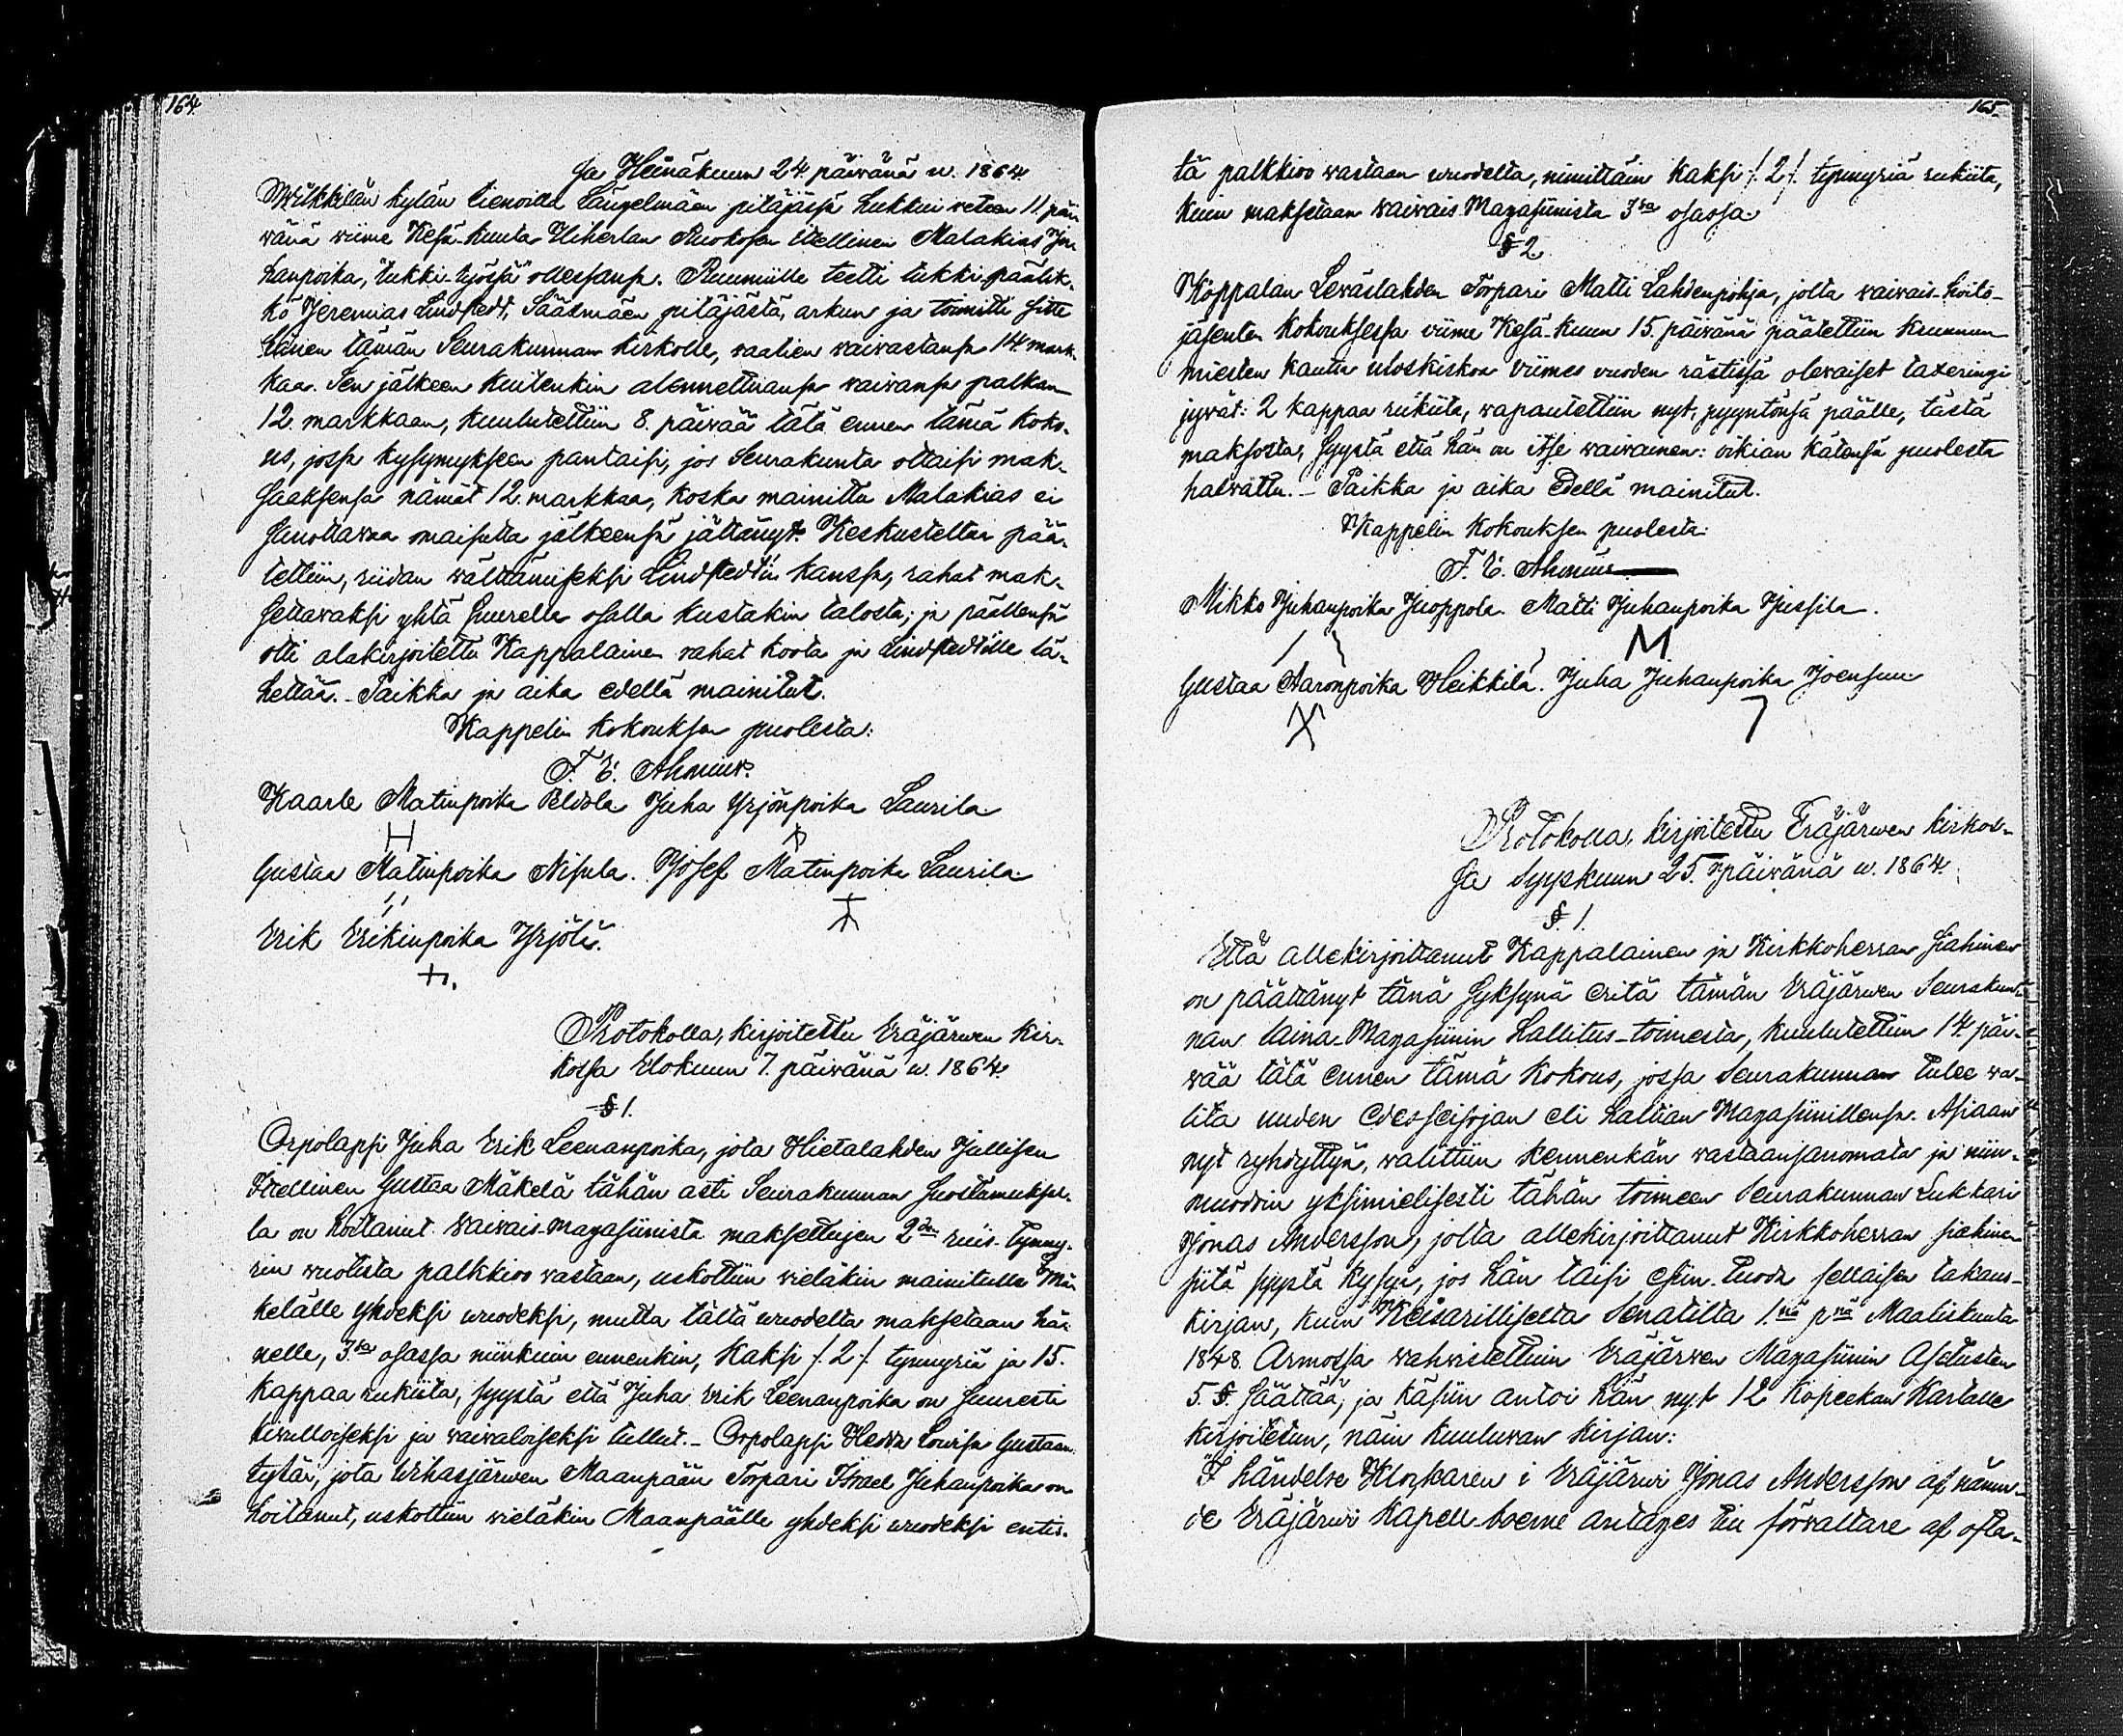 164.
sa Heinäkuun 24 päivänä w. 1864.
Wrikkilän kylän tienoilla Längelmäen pitäjässä hukkui veteen 11 päi-
wänä wiime Kesä-kuuta Uiherlan Ruokosen Itellinen Malakias Jo-
hanpoika, "tukki-työssä" ollessansa. Ruumiille teetti tukki päälik-
kö Jeremias Lindstedt, Sääksmäen pitäjästä, arkun ja toimitti sitte
hänen tämän Seurakunnan kirkolle, waatien waiwastansa 14 mark-
kaa. Sen jälkeen kuitenkin alennettuansa waiwansa palkan
12 markkaan, kuulutettiin 8. päiwää tätä ennen tämä koko-
us, jossa kysymykseen pantaisi, jos Seurakunta ottaisi mak-
saaksensa nämät 12. markkaa, koska mainittu Malakias ei
sanottawaa omaisutta jälkeensä jättänyt. Keskusteltua pää-
tettiin, riidan wälttämiseksi Lindstedt'in kanssa, rahat mak-
settawaksi yhtä suurella osalla kustakin talosta; ja päällensä
otti alakirjoitettu Kappalainen rahat koota ja Lindstedt'ille lä-
hettää. - Paikka ja aika edellä mainitut.
Kappelin kokouksen puolesta:
F. E. Ahonius.
Kaarle Matinpoika Peltola Juha Yrjönpoika Laurila
Gustaa Matinpoika Nisula. Josef Matinpoika Laurila
Erik Erikinpoika Yrjölä.
Protokolla, kirjoitettu Eräjärwen Kir-
kossa Elokuun 7. päivänä w. 1864.
§ 1.
Orpolapsi Juha Erik Leenanpoika, jota Hietalahden Jullisen
Itellinen Gustaa Mäkelä tähän asti Seurakunnan suostumuksel-
la on hoitanut waiwais-magasiinista maksettujen 2den riis-tynny-
rin wuotista palkkioo wastaan, uskottiin wieläkin mainitulle Mä-
kelälle yhdeksi wuodeksi, mutta tältä wuodelta maksetaan hä-
nelle, 3ssa osassa niinkuin ennenkin, Kaksi /: 2 :/ tynnyriä ja 15.
kappaa rukiita, syystä että Juha Erik Leenanpoika on suuresti
kiwulloiseksi ja waiwaloiseksi tullut. - Orpolapsi Hedda Lowisa Gustaan
tytär, jota Wihasjärwen Maanpään Torpari Israel Juhanpoika on
hoitanut, uskottiin wieläkin Maanpäälle yhdeksi wuodeksi entis-
165.
tä palkkioo wastaan wuodelta, nimittäin kaksi /: 2 :/ tynnyriä rukiita,
kuin maksetaan waiwais Magasiinista 3ssa osassa.
§ 2.
Koppalan Lewäslahden Torpari Matti Lahdenpohja, jolta waiwais-hoito-
jäsenten kokouksessa viime Kesä-kuun 15. päivänä päätettiin kruunun
miesten kautta uloskiskoa viimes vuoden rästissä olewaiset taxeringi
jywät: 2 kappaa rukiita, wapautettiin nyt, pyyntönsä päälle, tästä
maksosta, syystä että hän on itse waiwainen: oikian kätensä puolesta
halvattu. - Paikka ja aika edellä mainitut.
Kappelin kokouksen puolesta:
F. E. Ahonius
Mikko Juhanpoika Juoppola. Matti Juhanpoika Jussila.
Gustaa Aaronpoika Heikkilä. Juha Juhanpoika Joensuu
Protokolla, kirjoitettu Eräjärwen kirkos-
sa Syyskuun 25. päivänä w. 1864.
§. 1.
Että allekirjoittanut Kappalainen ja Kirkkoherran siahinen
on päättänyt tänä syksynä eritä tämän Eräjärwen Seurakun-
nan laina-Magasiinin hallitus-toimesta, kuulutettiin 14. päi-
wää tätä ennen tämä kokous, jossa Seurakunnan tulee wa-
lita uuden edesseisojan eli haltian Magasiinillensa. Asiaan
nyt ryhdyttyä, walittiin kennenkän wastaansanomata ja niin-
muodoin yksimielisesti tähän toimeen Seurakunnan Lukkari
Jonas Andersson, jolta allekirjoittanut Kirkkoherran siahinen
siitä syystä kysyi, jos hän taisi esiin-tuoda sellaisen takaus-
kirjan, kuin Keisarilliselta Senatilta 1.nä pnä Maaliskuuta
1848. Armossa wahwistettuin Eräjärwen Magasiinin Asetusten
5. §. säättää; ja käsiin antoi hän nyt 12 Kopeekan Kartalle
kirjoitetun, näin kuuluwan kirjan:
"I händelse Klockaren i Eräjärwi Jonas Andersson af nämn-
de Eräjärwi Kapell-boerne antages till förwaltare af ofta-